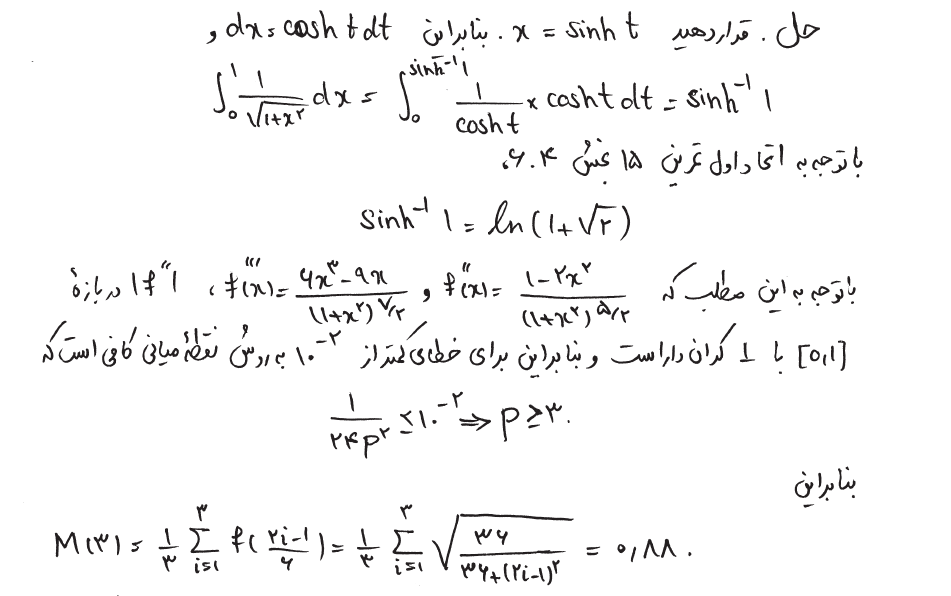 حل. قرار دهید x = sinh t. بنابراین dx = cosh t dt و
∫₀¹ 1/√(۱+x²) dx = ∫₀^{sinh⁻¹ ۱} 1/(cosh t) × cosh t dt = sinh⁻¹ ۱
با توجه به اتحاد اول تمرین ۱۵ بخش ۶.۴،
sinh⁻¹ ۱ = ln(۱+√۲)
با توجه به این مطلب که f″(x) = (۱-۲x²)/(۱+x²)^{۵/۲} و f‴(x) = (۶x³-۹x)/(۱+x²)^{۷/۲}، |f″| در بازهٔ
[۰,۱] با 1 کران دار است و بنابراین برای خطای کمتر از ۱۰⁻² به روش نقطهٔ میانی کافی است که
۱/(۲۴p²) ≤ ۱۰⁻² ⇒ p ≥ ۳.
بنابراین
M(۳) = ۱/۳ Σ_{i=۱}^{۳} f((۲i-۱)/۶) = ۱/۳ Σ_{i=۱}^{۳} √(۳۶/(۳۶+(۲i-۱)²)) = ۰٫۸۸.